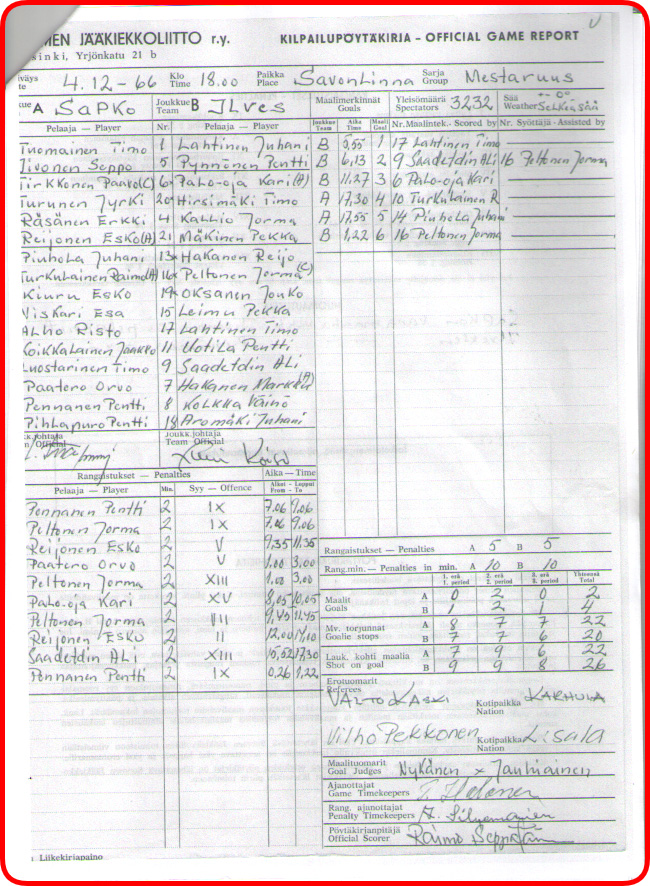 MEN JÄÄKIEKKOLIITTO r.y.
KILPAILUPÖYTÄKIRJA – OFFICIAL GAME REPORT
sinki, Yrjönkatu 21 b
iväys 4.12-66 Klo Time 18.00 Paikka Place Savonlinna Sarja Group Mestaruus
A SaPKo Joukkue Team B Ilves
Maalimerkinnät Goals
Yleisömäärä Spectators 3232
Sää Weather Selkeää
Pelaaja — Player Nr. Pelaaja — Player Nr.
Joukkue Team Aika Time Maali Goal Nr. Maalintek. - Scored by Nr. Syöttäjä - Assisted by
Tuomainen Timo 1 Lahtinen Juhani
Iivonen Seppo 5 Pynnönen Pentti
Tirkkonen Paavo(C) 6 Palo-oja Kari(A)
Turunen Jyrki 20 Hirsimäki Timo
Räsänen Erkki 4 Kallio Jorma
Reijonen Esko(A) 21 Mäkinen Pekka
Piuhola Juhani 13 Hakanen Reijo
Turkulainen Raimo(A) 16 Peltonen Jorma (C)
Kiuru Esko 19 Oksanen Jouko
Viskari Esa 15 Leimu Pekka
Alho Risto 17 Lahtinen Timo
Koikkalainen Jaakko 11 Uotila Pentti
Luostarinen Timo 9 Saadetdin Ali
Paatero Orvo 7 Hakanen Markku (A)
Pennanen Pentti 8 Kolkka Väinö
Pihlapuro Pentti 18 Aromäki Juhani
B 5,55 1 17 Lahtinen Timo
B 6,13 2 9 Saadetdin Ali 16 Peltonen Jorma
B 11.27 3 6 Palo-oja Kari
A 17,30 4 10 Turkulainen R
A 17,55 5 14 Piuhola Juhani
B 1,22 6 16 Peltonen Jorma
k.johtaja
Official
Joukk.johtaja
Team Official
Rangaistukset — Penalties Aika — Time
Pelaaja — Player Min. Syy — Offence Alkoi - Loppui From - To
Pennanen Pentti 2 IX 7.06 9.06
Peltonen Jorma 2 IX 7.06 9.06
Reijonen Esko 2 V 9,35 11,35
Paatero Orvo 2 V 1.00 3.00
Peltonen Jorma 2 XIII 1.00 3,00
Palo-oja Kari 2 XV 8,05 10,05
Peltonen Jorma 2 VII 9,45 11,45
Reijonen Esko 2 II 12,00 14,00
Saadetdin Ali 2 XIII 15,52 17,30
Pennanen Pentti 2 IX 0.26 1,22
Rangaistukset — Penalties A 5 B 5
Rang.min. — Penalties in min. A 10 B 10
1. erä 1. period 2. erä 2. period 3. erä 3. period Yhteensä Total
Maalit Goals A 0 2 0 2
B 1 2 1 4
Mv. torjunnat Goalie stops A 8 7 7 22
B 7 7 6 20
Lauk. kohti maalia Shot on goal A 7 9 6 22
B 9 9 8 26
Erotuomarit
Referees
Valto Kaski Kotipaikka Nation Karhula
Vilho Pekkonen Kotipaikka Nation Lisala
Maalituomarit
Goal Judges Nykänen x Jauhiainen
Ajanottajat
Game Timekeepers
Rang. ajanottajat
Penalty Timekeepers
Pöytäkirjanpitäjä
Official Scorer Raimo
Liikekirjapaino